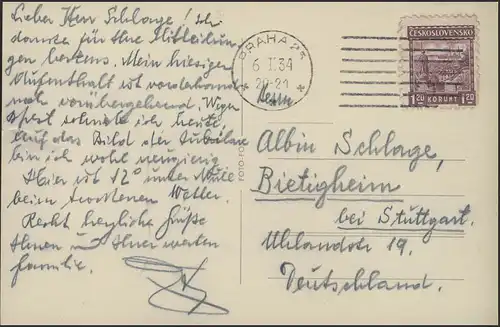 Lieber Herr Schlage! Ich
danke für Ihre Mitteilun-
gen bestens. Mein hiesiger
Aufenthalt ist vorderhand
nur vorübergehend. Wegen
schreibe ich heute,
auf das Bild der Jubilare
bin ich wohl neugierig
Hier ist 12° unter Null
beim trockenen Wetter.
Recht herzliche Grüße
Ihnen und Ihrer werten
Familie.
PRAHA 25
6 I. 34
20-21
Herrn
ČESKOSLOVENSKO
1.20 KORUNY 1.20
Albin Schlage,
Bietigheim
bei Stuttgart.
Uhlandstr 19.
Deutschland.